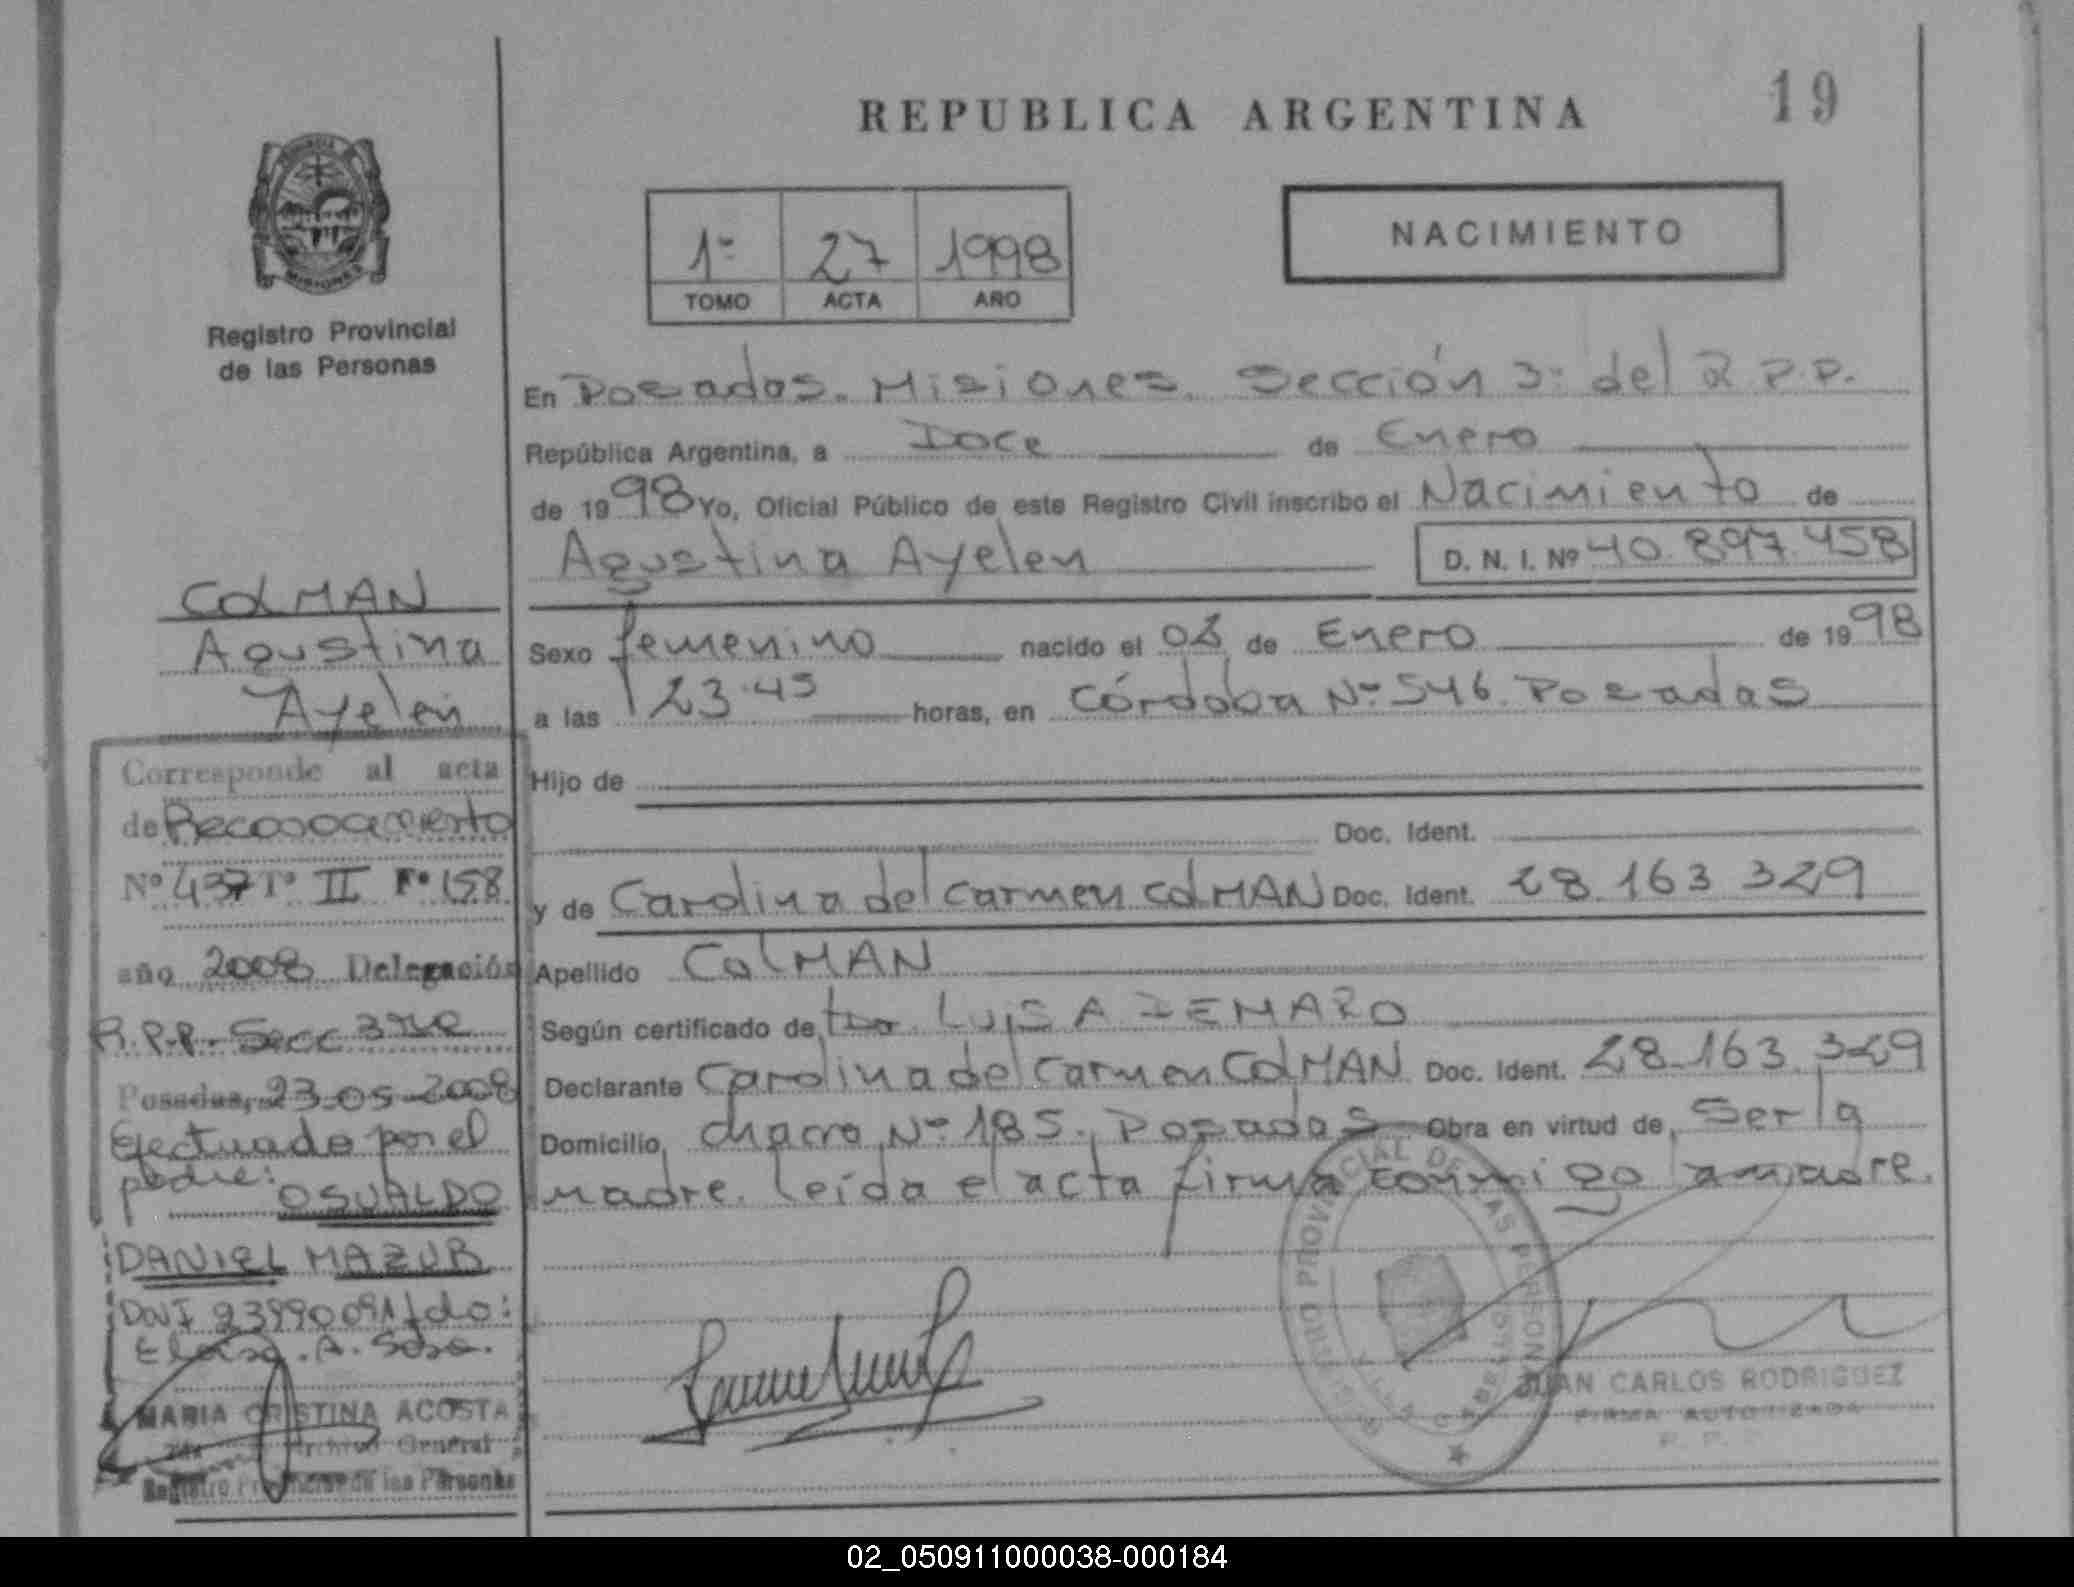 REPUBLICA ARGENTINA
19
PROVINCIA
MISIONES
Registro Provincial
de las Personas
1º 27 1998
TOMO ACTA AÑO
NACIMIENTO
En Posadas. Misiones. Sección 3º del R P.P.
República Argentina, a Doce de Enero
de 1998 Yo, Oficial Público de este Registro Civil inscribo el Nacimiento de
Agustina Ayelen D. N. I. Nº 40.897.458
Sexo femenino nacido el 08 de Enero de 1998
a las 23.45 horas, en Córdoba Nº 546. Posadas
Hijo de
Doc. Ident.
y de Carolina del Carmen ColMAN Doc. Ident. 28.163.329
Apellido ColMAN
Según certificado de LUIS A
Declarante Carolina del Carmen ColMAN Doc. Ident. 28.163.329
Domicilio chacra Nº 185. Posadas Obra en virtud de Ser la
madre. Leída el acta firma conmigo la madre.
ColMAN
Agustina
Ayelen
Corresponde al acta
de Reconocimiento
Nº 437 Tº II Fº 158
año 2008 Delegación
R.P.P. Secc 3
Posadas, 23-05-2008
Efectuado por el
padre:
OSVALDO
DANIEL MAZUR
DNI 23990091 fdo:
A. Sosa.
MARIA CRISTINA ACOSTA
Archivo General
Registro Provincial de las Personas
REGISTRO PROVINCIAL DE LAS PERSONAS
JUAN CARLOS RODRIGUEZ
FIRMA AUTORIZADA
02_050911000038-000184